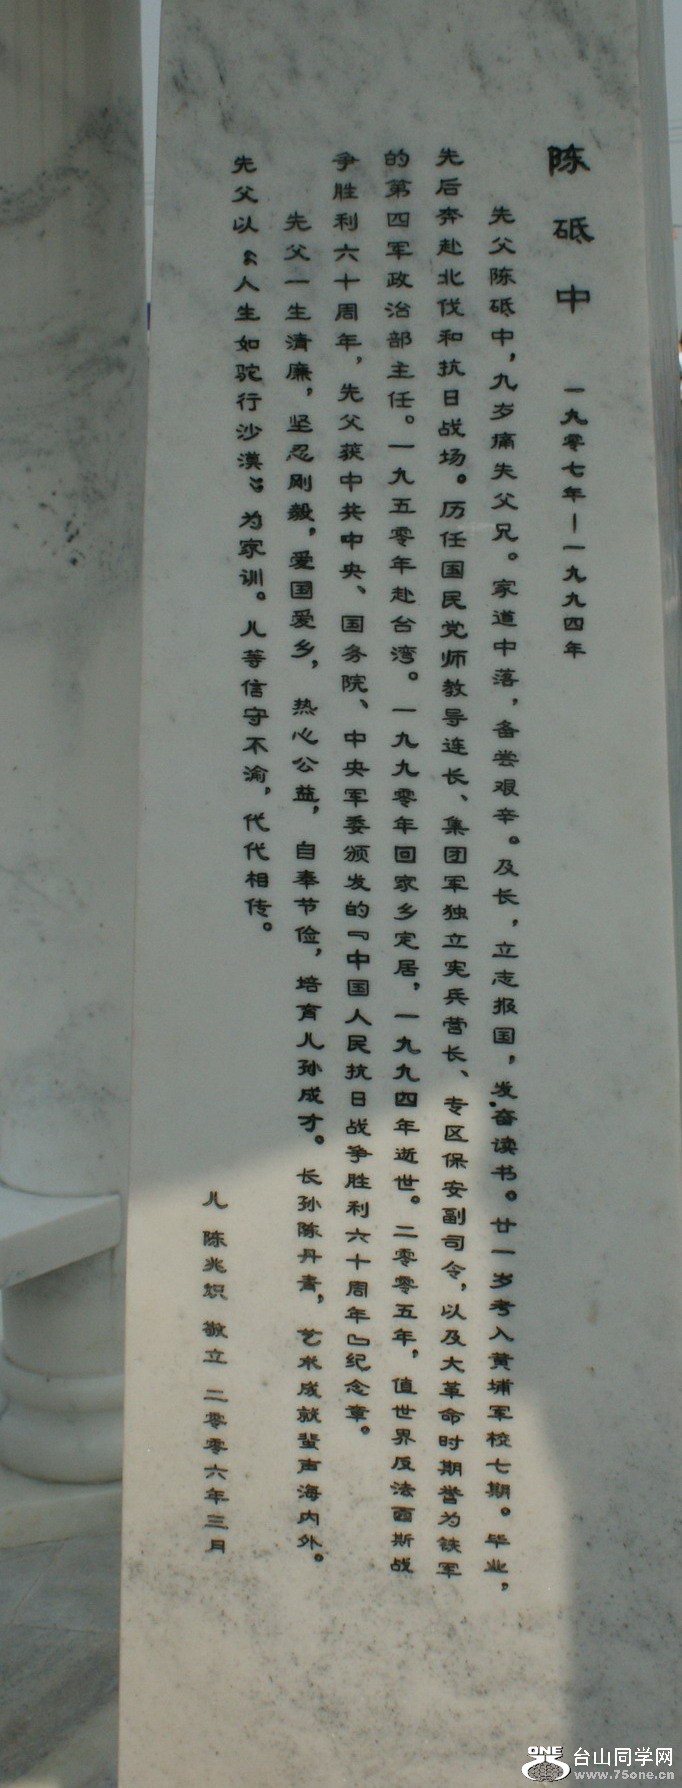 陈砥中 一九零七年－一九九四年
先父陈砥中，九岁痛失父兄。家道中落，备尝艰辛。及长，立志报国，发奋读书。廿一岁考入黄埔军校七期。毕业，
先后奔赴北伐和抗日战场。历任国民党师教导连长、集团军独立宪兵营长、专区保安副司令，以及大革命时期誉为铁军
的第四军政治部主任。一九五零年赴台湾。一九九零年回家乡定居，一九九四年逝世。二零零五年，值世界反法西斯战
争胜利六十周年，先父获中共中央、国务院、中央军委颁发的『中国人民抗日战争胜利六十周年』纪念章。
先父一生清廉，坚忍刚毅，爱国爱乡，热心公益，自奉节俭，培育儿孙成才。长孙陈丹青，艺术成就蜚声海内外。
先父以“人生如驼行沙漠”为家训。儿等信守不渝，代代相传。
儿 陈兆炽 敬立 二零零六年三月
ONE 台山同学网
www.75one.cn